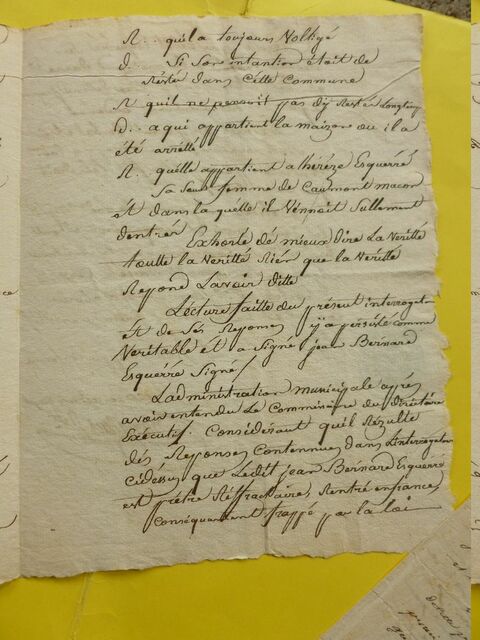 R... qu'il a toujours Voltigé
D... Si Son intantion était de
Rester dans Cette Commune
R quil ne pensoit pas dÿ Rester Longtemp
D.. a qui appartient la maizon ou il a
été arretté
R. quélle appartient a thérèze Esquerré
Sa Seur femme de Caumont macon
et dans la quelle il Vennoit Sullement
dentrér Exhorté dé mieux Dire La Veritté
toutte la Veritté Rién que la Veritté
Repond Lavoir ditte
Lécture faitte du présent interrogatoi
et de Sés Reponses ÿ a persisté comme
Veritable et a Signé jean Bernard
Esquérré Signé
Ladministration municipale aprés
avoir entendu Le Commissire du diréctoire
Exécutif. Considérant quil Rézulte
dés Reponses Contennues dans Linterrogatoire
Cidéssus que Ledit jean Bernard Esquerré
est prétre Réffractaire, Rentré enfrance,
Conséquenment frappé par la loi